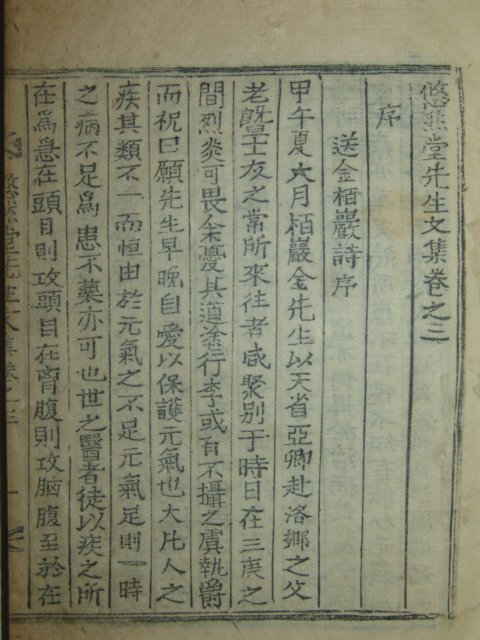 悠然堂先生文集卷之三
序
送金栢巖詩序
甲午夏六月栢巖金先生以天省亞卿赴洛鄉之父
老曁士友之常所來往者咸聚别于時日在三庚之
間烈炎可畏余憂其道塗行李或有不攝之虞執爵
而祝曰願先生早晩自愛以保護元氣也大凡人之
疾其類不一而恒由於元氣之不足元氣足則一時
之病不足爲患不藥亦可也世之醫者徒以疾之所
在爲急在頭目則攻頭目在胷腹則攻胸腹至於在
悠然堂先生文集卷之三 一